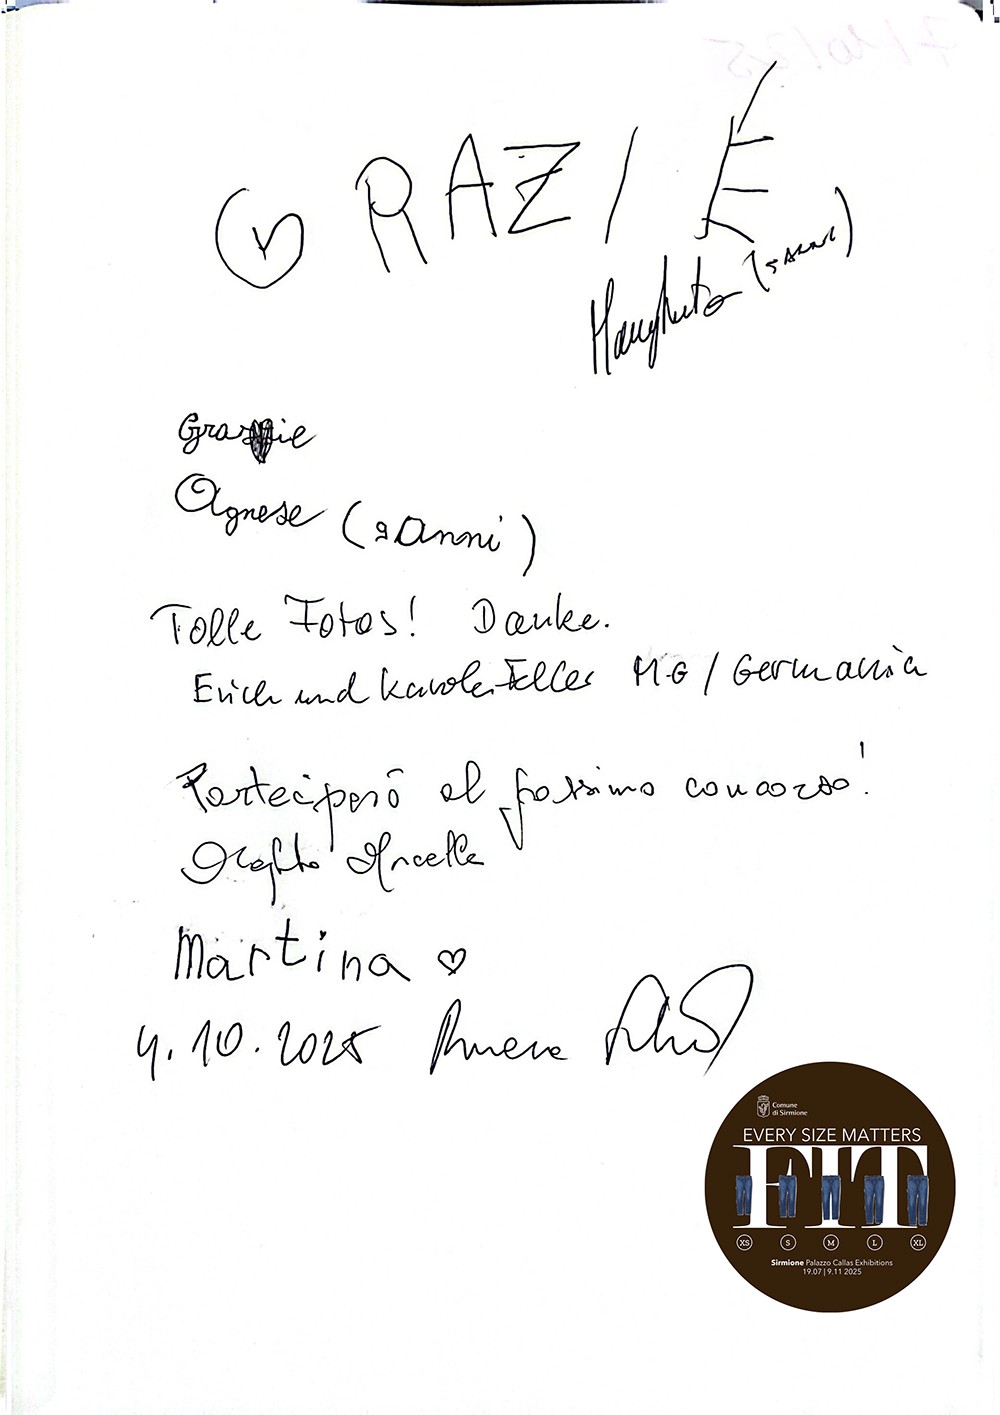 GRAZIE
Margherita (5 ANNI)
Grazie
Agnese (9 anni)
Tolle Fotos! Danke.
Erich und Karola Feller MG / Germania
Parteciperò al prossimo concorso!
Martina ♡
4.10.2025
Comune
di Sirmione
EVERY SIZE MATTERS
FIT
XS S M L XL
Sirmione Palazzo Callas Exhibitions
19.07 | 9.11 2025